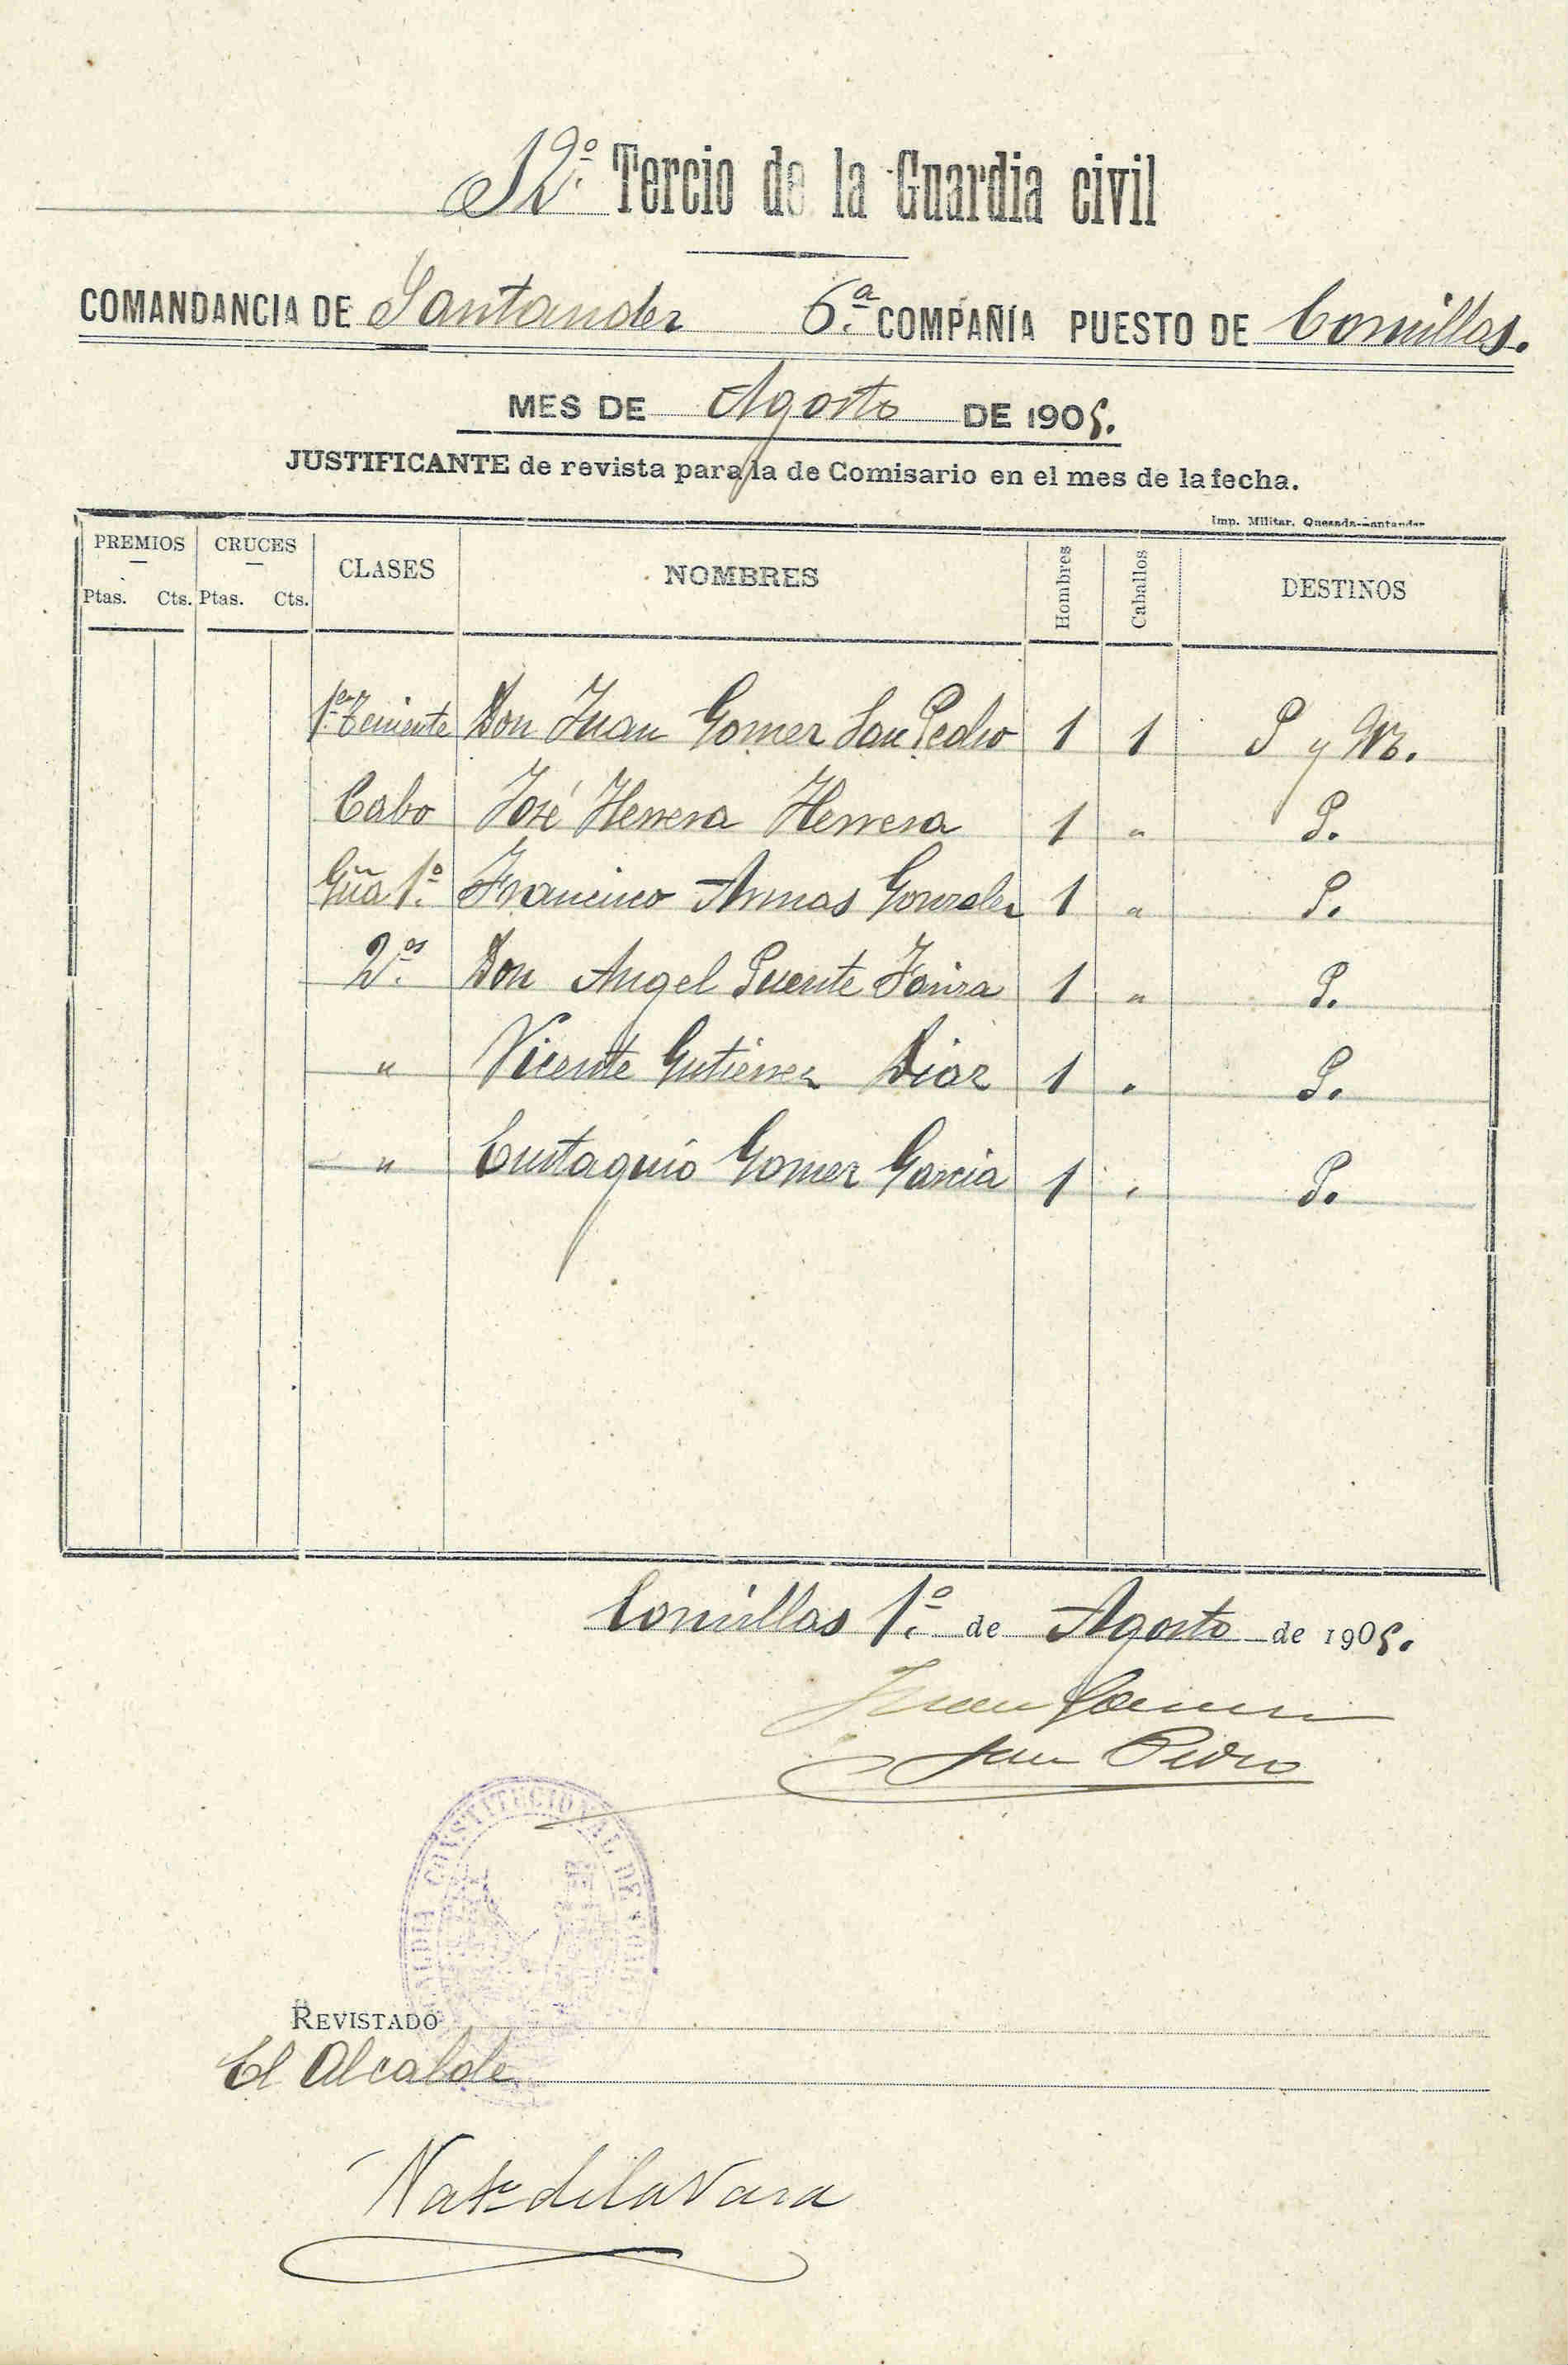 12º Tercio de la Guardia civil
COMANDANCIA DE Santander 6.ª COMPAÑÍA PUESTO DE Comillas.
MES DE Agosto DE 1905.
JUSTIFICANTE de revista para la de Comisario en el mes de la fecha.
Imp. Militar. Quesada-Santander
PREMIOS CRUCES CLASES NOMBRES Hombres Caballos DESTINOS
Ptas. Cts. Ptas. Cts.
1.er Teniente Don Juan Gomez San Pedro 1 1 P y
Cabo José Herrera Herrera 1 " P.
Gūa 1.º Francisco Armas Gonzalez 1 " P.
2.os Don Angel Puente 1 " P.
" Vicente Gutierrez Diaz 1 " P.
" Eustaquio Gomez Garcia 1 " P.
Comillas 1.º de Agosto de 1905.
Juan Gomez
San Pedro
ALCALDIA CONSTITUCIONAL DE
REVISTADO
El Alcalde
de la Vara